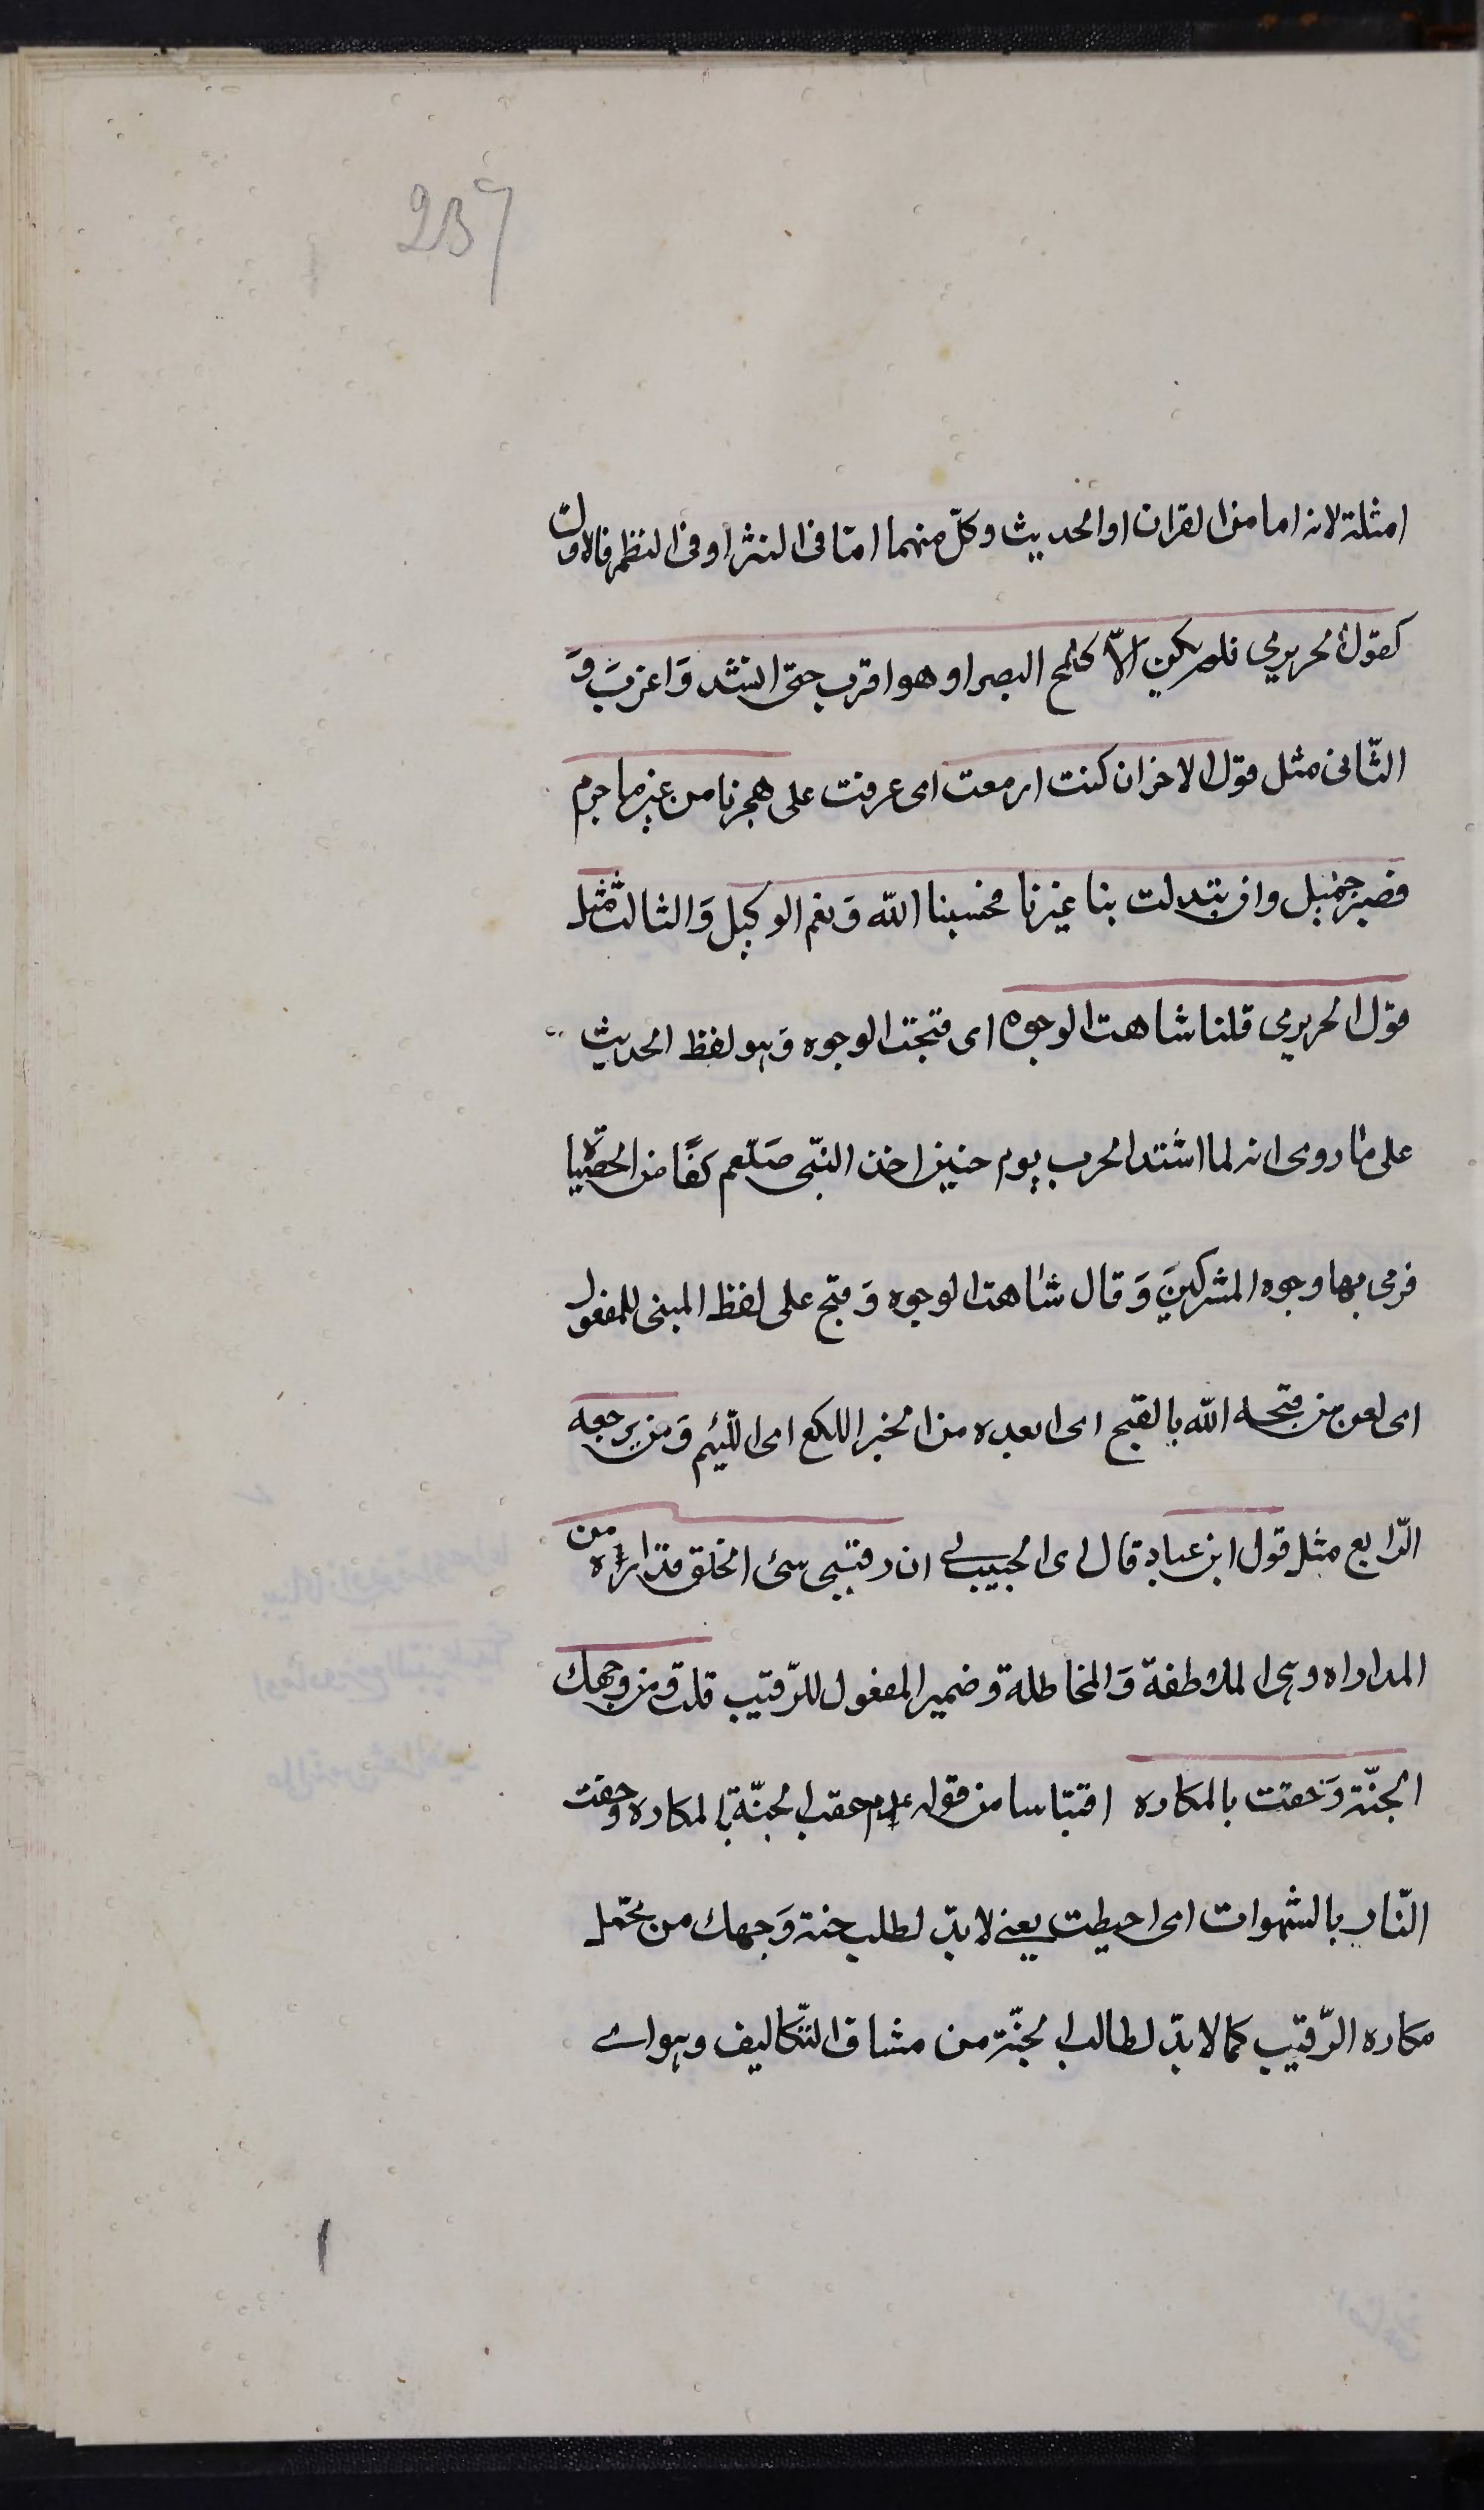 237
امثلة لانه اما من القران او الحديث وكلّ منهما امّا فى النثر او فى النظم فالاول
كقول الحريرى فلم يكن الاّ كلمح البصر او هو اقرب حتى انشد وَاغرب وَ
الثّانى مثل قول الاخر ان كنت ازمعت اى عزمت على هجرنا من غير ما جرم
فصبر جميل وان تبدلت بنا غيرنا فحسبنا الله وَنعم الوكيل وَالثالث مثل
قول الحريرى قلنا شاهت الوجوه اى قبحت الوجوه وَهو لفظ الحديث
على ما روى انه لما اشتد الحرب يوم حنين اخذ النبّى صَلّعم كفًا من الحصباء
فرمى بها وجوه المشركينَ وَقال شاهت الوجوه وَقبح على لفظ المبنى للمفعول
اى لعن من قبحه الله بالفتح اى ابعده من الخير اللكع اى اللّئيم وَمن يرجعه
الرّابع مثل قول ابن عباد قال لى اى الحبيب لى ان رقيبى سئ الخلق فداره من
المداراه وهى الملاطفة وَالمخاطلة وضمير المفعول للرّقيب قلت من وجهك
الجنّة وَحفت بالمكاره اقتباسا من قوله عم حفت الجنّة بالمكاره وحفت
النّار بالشهوات اى احيطت يعنى لا بدّ لطلب جنة وَجهك من تحّمل
مكاره الرّقيب كما لا بدّ لطالب الجنّة من مشاق التّكاليف وهو اى